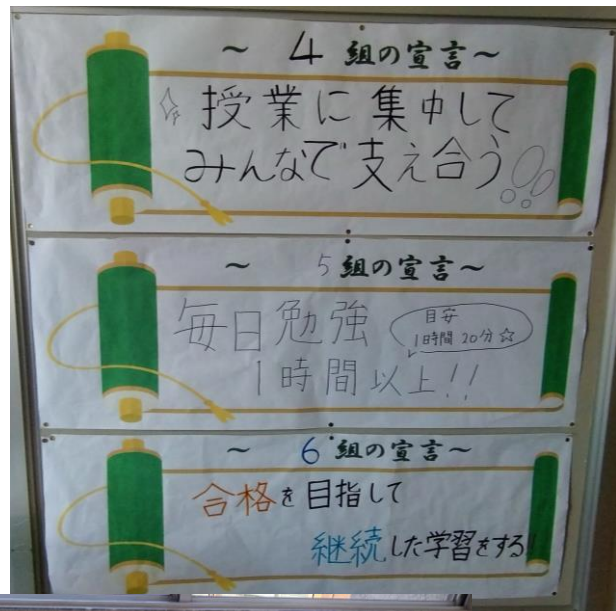 ～ 4 組の宣言～
授業に集中して
みんなで支え合う!!
～ 5 組の宣言～
毎日勉強
目安
1時間20分☆
1時間以上!!
～ 6 組の宣言～
合格を目指して
継続した学習をする!